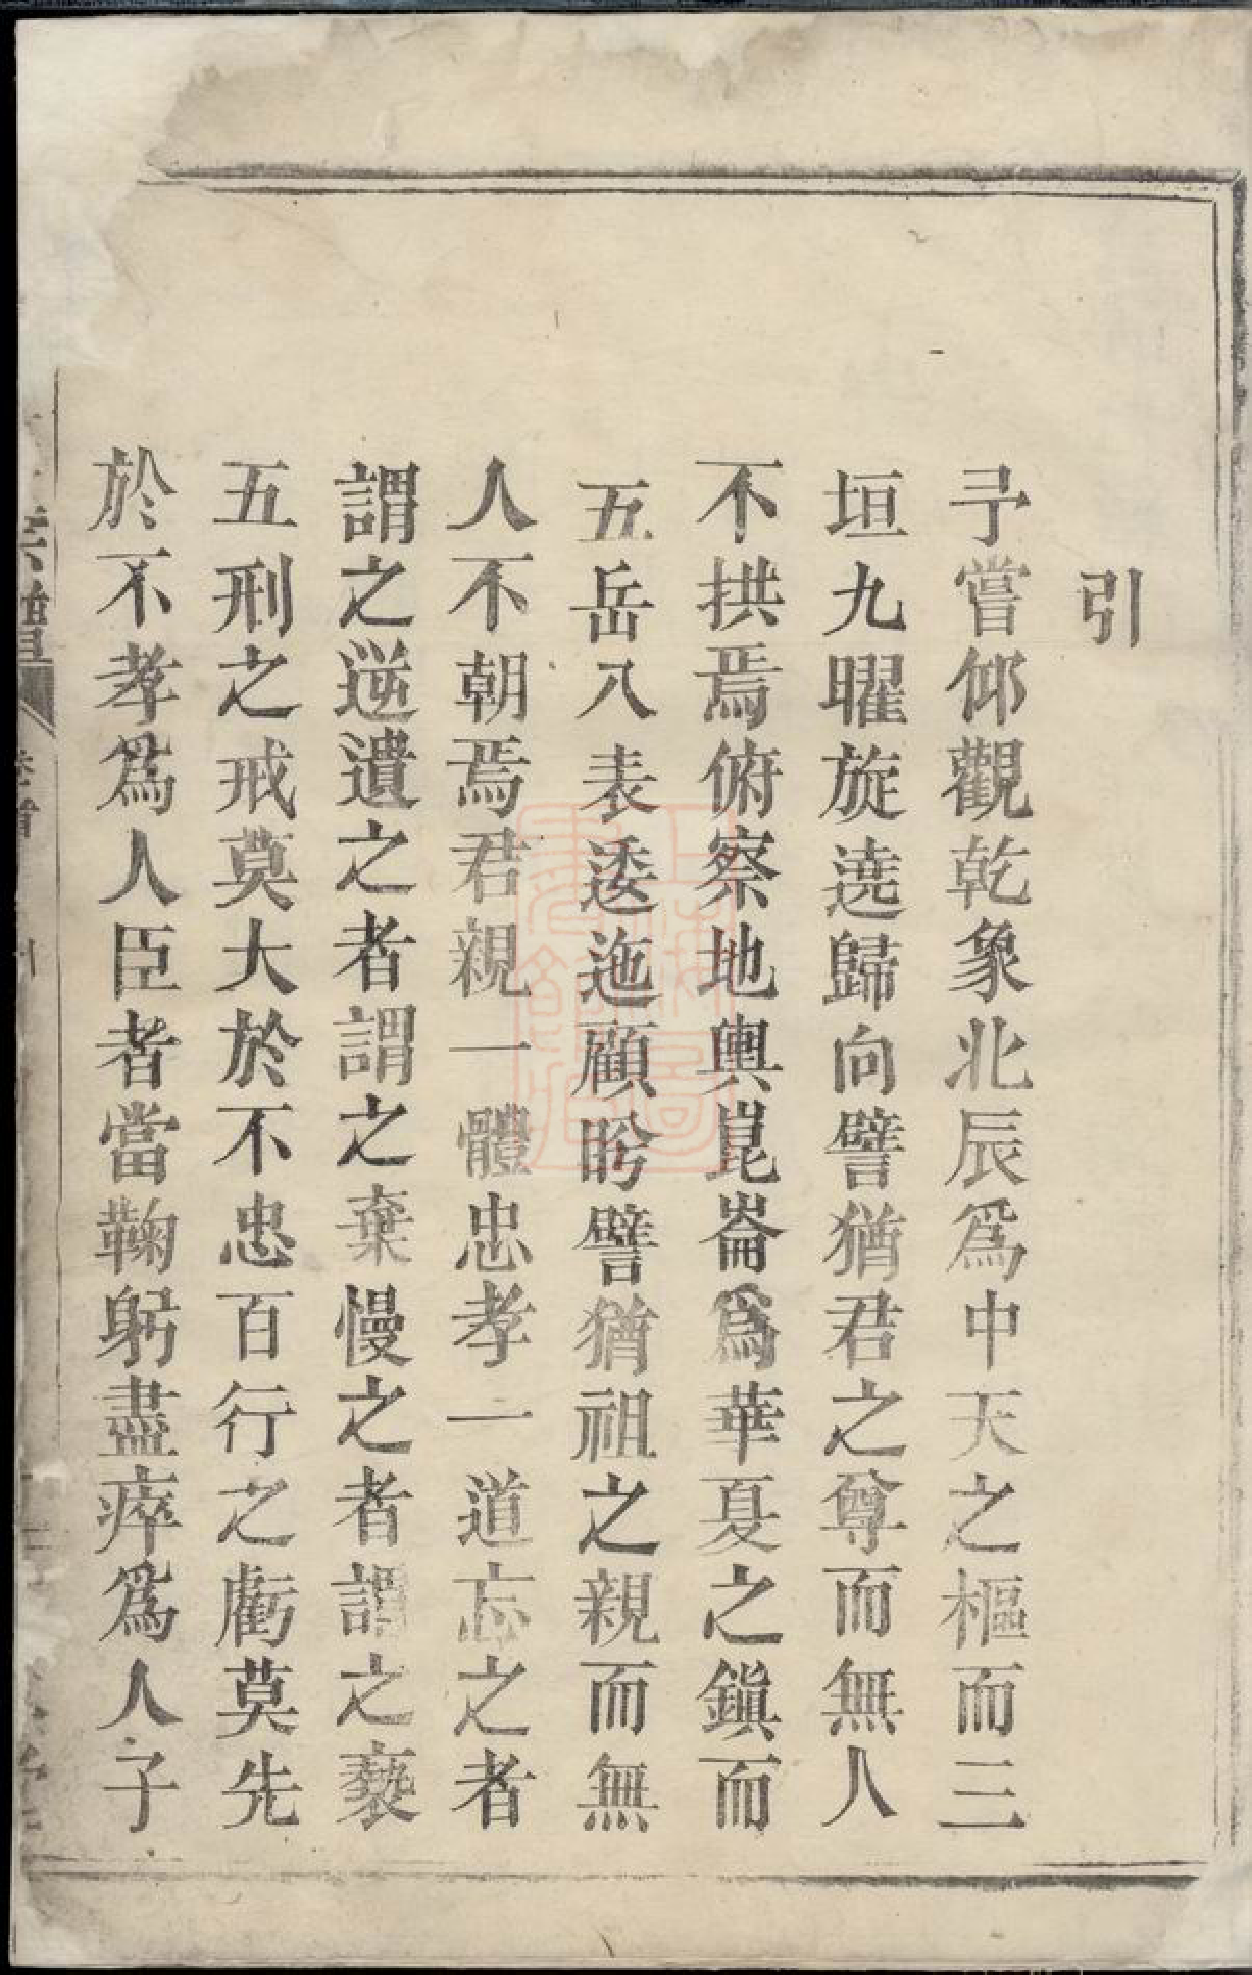 引
予嘗仰觀乾象北辰爲中天之樞而三
垣九曜旋遶歸向譬猶君之尊而無人
不拱焉俯察地輿崑崙爲華夏之鎮而
五岳八表逶迤顧盻譬猶祖之親而無
人不朝焉君親一體忠孝一道忘之者
謂之逆遺之者謂之棄慢之者謂之褻
五刑之戒莫大於不忠百行之虧莫先
於不孝爲人臣者當鞠躬盡瘁爲人子